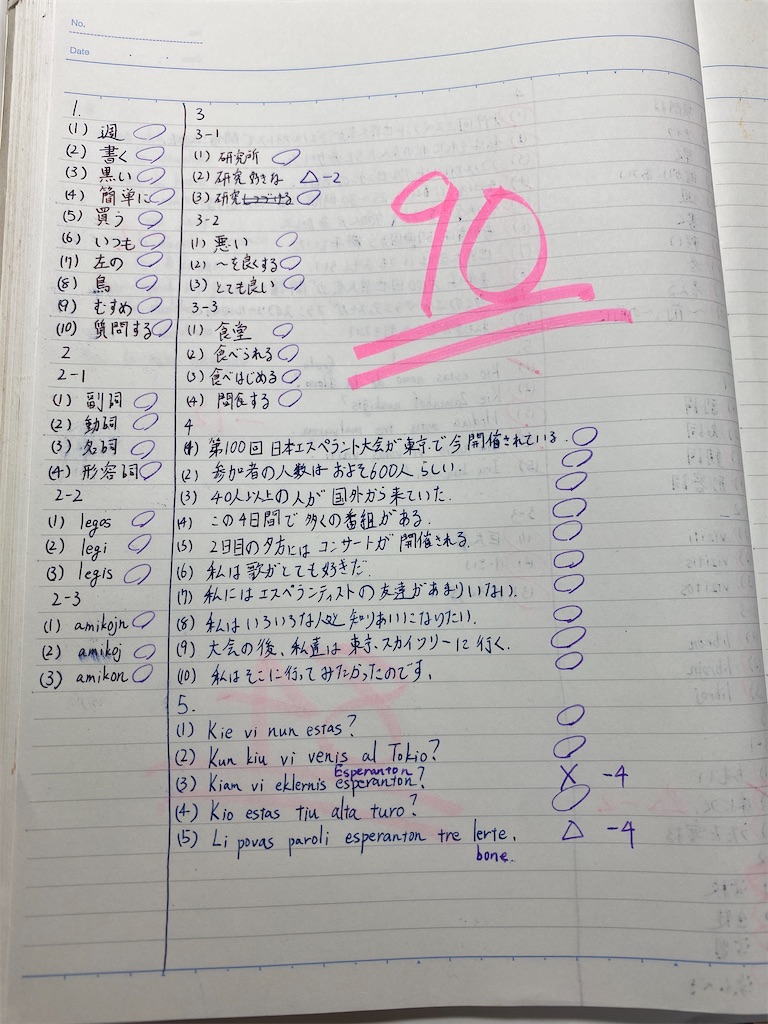 No.
Date
1.
(1) 週
(2) 書く
(3) 黒い
(4) 簡単に
(5) 買う
(6) いつも
(7) 左の
(8) 鳥
(9) むすめ
(10) 質問する
2
2-1
(1) 副詞
(2) 動詞
(3) 名詞
(4) 形容詞
2-2
(1) legos
(2) legi
(3) legis
2-3
(1) amikojn
(2) amikoj
(3) amikon
3
3-1
(1) 研究所
(2) 研究好きな △-2
(3) 研究しつづける
3-2
(1) 悪い
(2) ～を良くする
(3) とても良い
3-3
(1) 食堂
(2) 食べられる
(3) 食べはじめる
(4) 間食する
4
(1) 第100回 日本エスペラント大会が東京で今開催されている.
(2) 参加者の人数はおよそ600人らしい.
(3) 40人以上の人が国外から来ていた.
(4) この4日間で多くの番組がある.
(5) 2日目の夕方にはコンサートが開催される.
(6) 私は歌がとても好きだ.
(7) 私にはエスペランティストの友達があまりいない.
(8) 私はいろいろな人と知りあいになりたい.
(9) 大会の後、私達は東京スカイツリーに行く.
(10) 私はそこに行ってみたかったのです.
5.
(1) Kie vi nun estas?
(2) Kun kiu vi venis al Tokio?
Esperanton
(3) Kiam vi eklernis esperanton? X -4
(4) Kio estas tiu alta turo?
(5) Li povas paroli esperanton tre lerte. △ -4
bone.
90